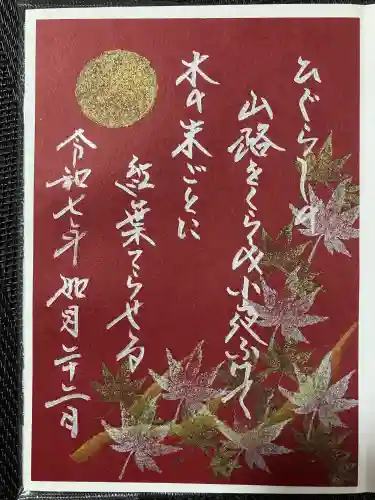 ひぐらしの
山路をくらみ小夜ふけて
木の末ごとに
紅葉てらせる
令和七年 如月二十二日